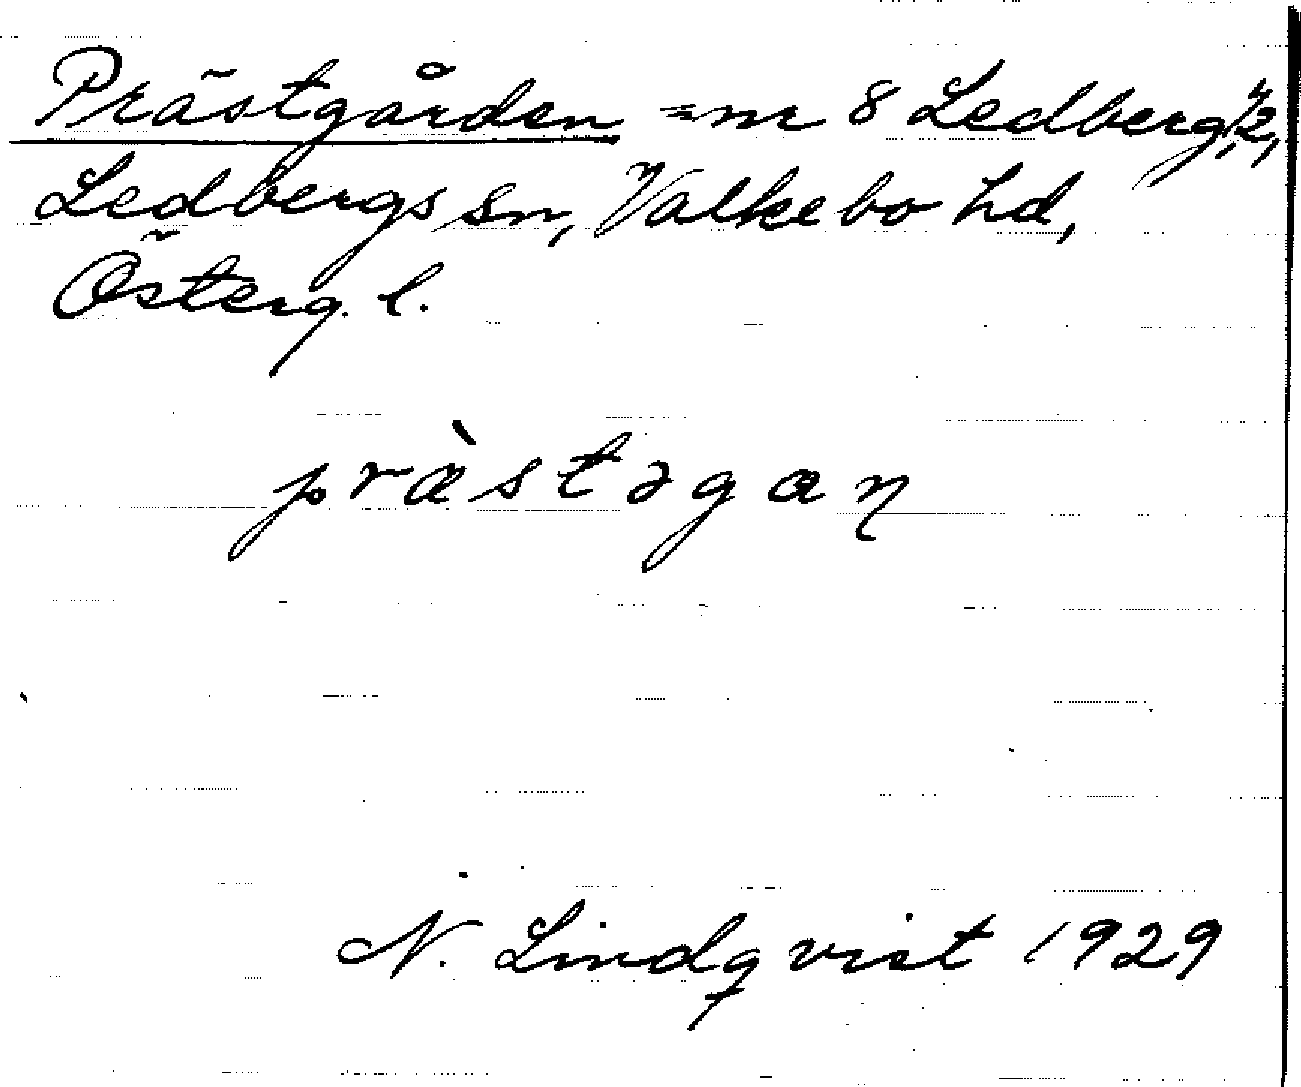 Prästgården = nr 8 Ledberg, 1/2,
Ledbergs sn, Valkebo hd,
Österg. l.
prὰstəgaɳ
N. Lindqvist 1929